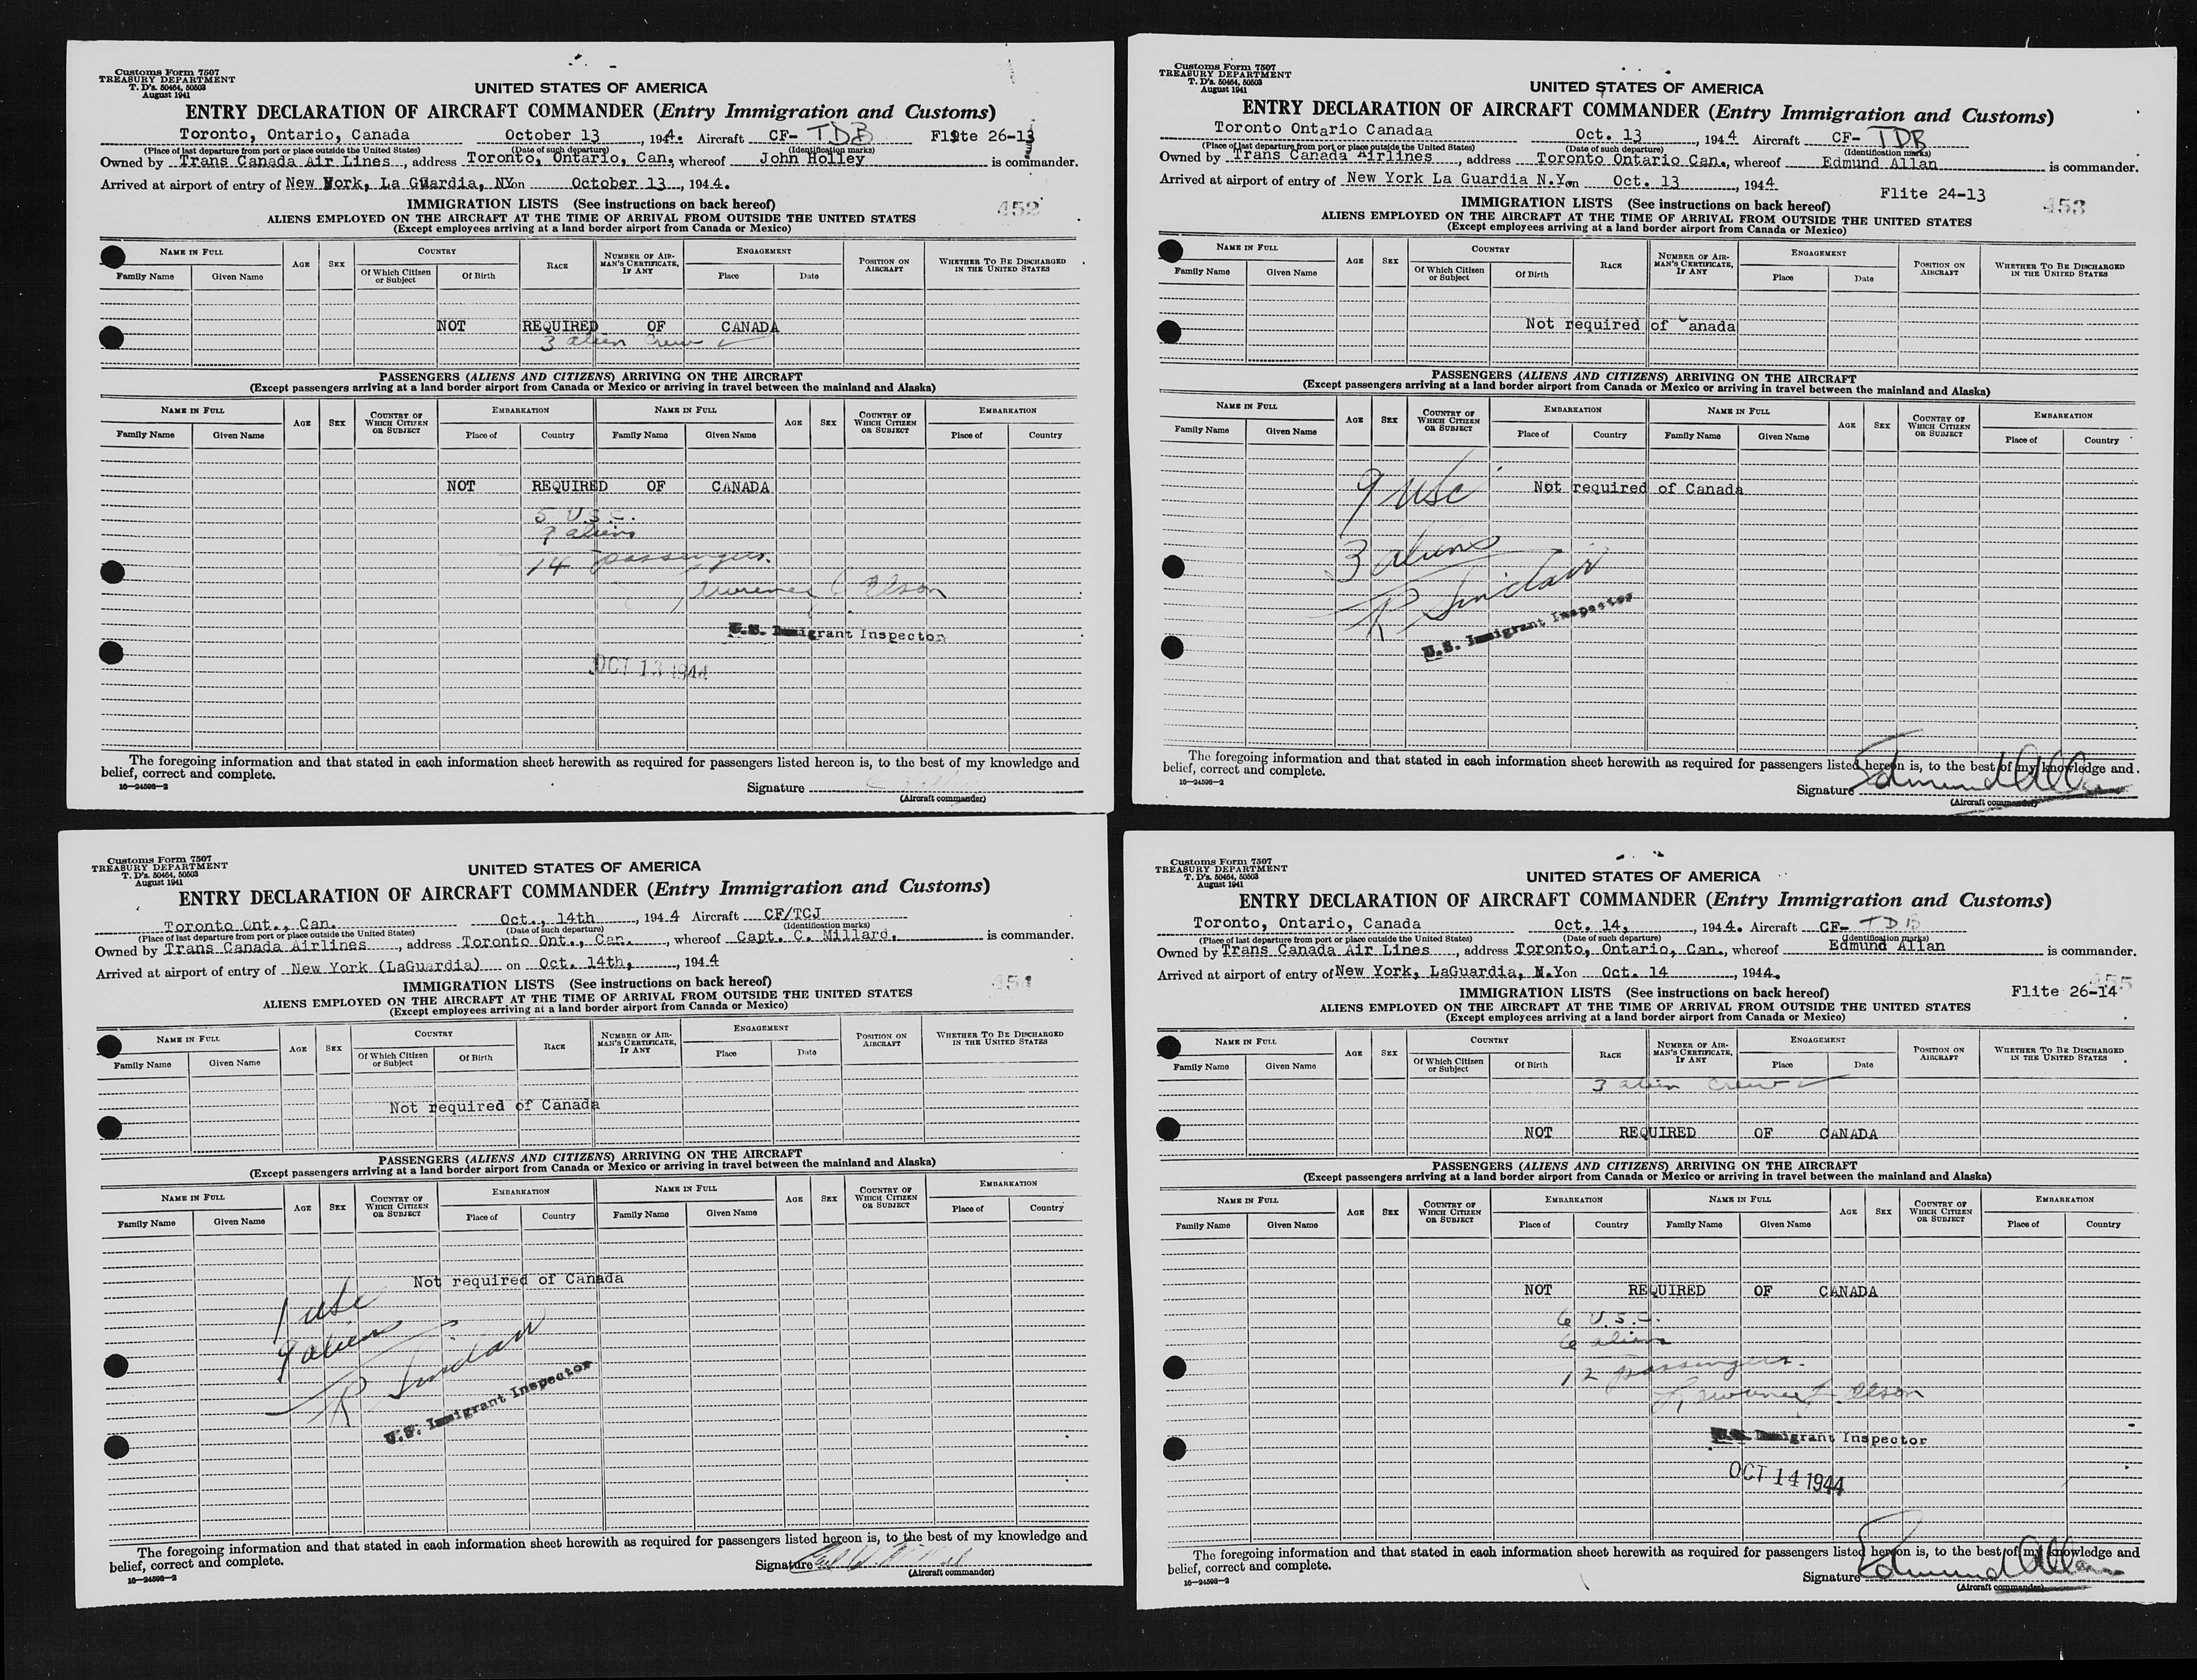 Customs Form 7507
TREASURY DEPARTMENT
T. D's. 50464, 50503
August 1941
UNITED STATES OF AMERICA
ENTRY DECLARATION OF AIRCRAFT COMMANDER (Entry Immigration and Customs)
Toronto, Ontario, Canada October 13, 1944. Aircraft CF- TDB Flite 26-13
(Place of last departure from port or place outside the United States) (Date of such departure) (Identification marks)
Owned by Trans Canada Air Lines, address Toronto, Ontario, Can, whereof John Holley is commander.
Arrived at airport of entry of New York, La Guardia, NY on October 13, 1944.
IMMIGRATION LISTS (See instructions on back hereof) 452
ALIENS EMPLOYED ON THE AIRCRAFT AT THE TIME OF ARRIVAL FROM OUTSIDE THE UNITED STATES
(Except employees arriving at a land border airport from Canada or Mexico)
NAME IN FULL AGE SEX COUNTRY RACE NUMBER OF AIRMAN'S CERTIFICATE, IF ANY ENGAGEMENT POSITION ON AIRCRAFT WHETHER TO BE DISCHARGED IN THE UNITED STATES
Family Name Given Name Of Which Citizen or Subject Of Birth Place Date
NOT REQUIRED OF CANADA
3 alien crew
PASSENGERS (ALIENS AND CITIZENS) ARRIVING ON THE AIRCRAFT
(Except passengers arriving at a land border airport from Canada or Mexico or arriving in travel between the mainland and Alaska)
NAME IN FULL AGE SEX COUNTRY OF WHICH CITIZEN OR SUBJECT EMBARKATION NAME IN FULL AGE SEX COUNTRY OF WHICH CITIZEN OR SUBJECT EMBARKATION
Family Name Given Name Place of Country Family Name Given Name Place of Country
NOT REQUIRED OF CANADA
5 U.S.C.
9 aliens
14 passengers.
U.S. Immigrant Inspector
OCT 13 1944
The foregoing information and that stated in each information sheet herewith as required for passengers listed hereon is, to the best of my knowledge and
belief, correct and complete.
Signature
16—24598-2 (Aircraft commander)
Customs Form 7507
TREASURY DEPARTMENT
T. D's. 50464, 50503
August 1941
UNITED STATES OF AMERICA
ENTRY DECLARATION OF AIRCRAFT COMMANDER (Entry Immigration and Customs)
Toronto Ontario Canadaa Oct. 13, 1944 Aircraft CF- TDB
(Place of last departure from port or place outside the United States) (Date of such departure) (Identification marks)
Owned by Trans Canada Airlines, address Toronto Ontario Can., whereof Edmund Allan is commander.
Arrived at airport of entry of New York La Guardia N.Y. on Oct. 13, 1944
Flite 24-13
IMMIGRATION LISTS (See instructions on back hereof) 453
ALIENS EMPLOYED ON THE AIRCRAFT AT THE TIME OF ARRIVAL FROM OUTSIDE THE UNITED STATES
(Except employees arriving at a land border airport from Canada or Mexico)
NAME IN FULL AGE SEX COUNTRY RACE NUMBER OF AIRMAN'S CERTIFICATE, IF ANY ENGAGEMENT POSITION ON AIRCRAFT WHETHER TO BE DISCHARGED IN THE UNITED STATES
Family Name Given Name Of Which Citizen or Subject Of Birth Place Date
Not required of Canada
PASSENGERS (ALIENS AND CITIZENS) ARRIVING ON THE AIRCRAFT
(Except passengers arriving at a land border airport from Canada or Mexico or arriving in travel between the mainland and Alaska)
NAME IN FULL AGE SEX COUNTRY OF WHICH CITIZEN OR SUBJECT EMBARKATION NAME IN FULL AGE SEX COUNTRY OF WHICH CITIZEN OR SUBJECT EMBARKATION
Family Name Given Name Place of Country Family Name Given Name Place of Country
9 usc Not required of Canada
3 aliens
R Sinclair
U.S. Immigrant Inspector
The foregoing information and that stated in each information sheet herewith as required for passengers listed hereon is, to the best of my knowledge and
belief, correct and complete.
Signature Edmund Allan
16—24598-2 (Aircraft commander)
Customs Form 7507
TREASURY DEPARTMENT
T. D's. 50464, 50503
August 1941
UNITED STATES OF AMERICA
ENTRY DECLARATION OF AIRCRAFT COMMANDER (Entry Immigration and Customs)
Toronto Ont., Can. Oct., 14th, 1944 Aircraft CF/TCJ
(Place of last departure from port or place outside the United States) (Date of such departure) (Identification marks)
Owned by Trans Canada Airlines, address Toronto Ont., Can., whereof Capt. C. Millard. is commander.
Arrived at airport of entry of New York (LaGuardia) on Oct. 14th, 1944
IMMIGRATION LISTS (See instructions on back hereof) 454
ALIENS EMPLOYED ON THE AIRCRAFT AT THE TIME OF ARRIVAL FROM OUTSIDE THE UNITED STATES
(Except employees arriving at a land border airport from Canada or Mexico)
NAME IN FULL AGE SEX COUNTRY RACE NUMBER OF AIRMAN'S CERTIFICATE, IF ANY ENGAGEMENT POSITION ON AIRCRAFT WHETHER TO BE DISCHARGED IN THE UNITED STATES
Family Name Given Name Of Which Citizen or Subject Of Birth Place Date
Not required of Canada
PASSENGERS (ALIENS AND CITIZENS) ARRIVING ON THE AIRCRAFT
(Except passengers arriving at a land border airport from Canada or Mexico or arriving in travel between the mainland and Alaska)
NAME IN FULL AGE SEX COUNTRY OF WHICH CITIZEN OR SUBJECT EMBARKATION NAME IN FULL AGE SEX COUNTRY OF WHICH CITIZEN OR SUBJECT EMBARKATION
Family Name Given Name Place of Country Family Name Given Name Place of Country
Not required of Canada
1 usc
9 aliens
R Sinclair
U.S. Immigrant Inspector
The foregoing information and that stated in each information sheet herewith as required for passengers listed hereon is, to the best of my knowledge and
belief, correct and complete.
Signature
16—24598-2 (Aircraft commander)
Customs Form 7507
TREASURY DEPARTMENT
T. D's. 50464, 50503
August 1941
UNITED STATES OF AMERICA
ENTRY DECLARATION OF AIRCRAFT COMMANDER (Entry Immigration and Customs)
Toronto, Ontario, Canada Oct. 14, 1944. Aircraft CF- TDB
(Place of last departure from port or place outside the United States) (Date of such departure) (Identification marks)
Owned by Trans Canada Air Lines, address Toronto, Ontario, Can., whereof Edmund Allan is commander.
Arrived at airport of entry of New York, LaGuardia, N.Y on Oct. 14, 1944.
IMMIGRATION LISTS (See instructions on back hereof) Flite 26-14 455
ALIENS EMPLOYED ON THE AIRCRAFT AT THE TIME OF ARRIVAL FROM OUTSIDE THE UNITED STATES
(Except employees arriving at a land border airport from Canada or Mexico)
NAME IN FULL AGE SEX COUNTRY RACE NUMBER OF AIRMAN'S CERTIFICATE, IF ANY ENGAGEMENT POSITION ON AIRCRAFT WHETHER TO BE DISCHARGED IN THE UNITED STATES
Family Name Given Name Of Which Citizen or Subject Of Birth Place Date
3 alien crew
NOT REQUIRED OF CANADA
PASSENGERS (ALIENS AND CITIZENS) ARRIVING ON THE AIRCRAFT
(Except passengers arriving at a land border airport from Canada or Mexico or arriving in travel between the mainland and Alaska)
NAME IN FULL AGE SEX COUNTRY OF WHICH CITIZEN OR SUBJECT EMBARKATION NAME IN FULL AGE SEX COUNTRY OF WHICH CITIZEN OR SUBJECT EMBARKATION
Family Name Given Name Place of Country Family Name Given Name Place of Country
NOT REQUIRED OF CANADA
6 U.S.C.
6 aliens
12 passengers.
Lawrence J Olson
U.S. Immigrant Inspector
OCT 14 1944
The foregoing information and that stated in each information sheet herewith as required for passengers listed hereon is, to the best of my knowledge and
belief, correct and complete.
Signature Edmund Allan
16—24598-2 (Aircraft commander)